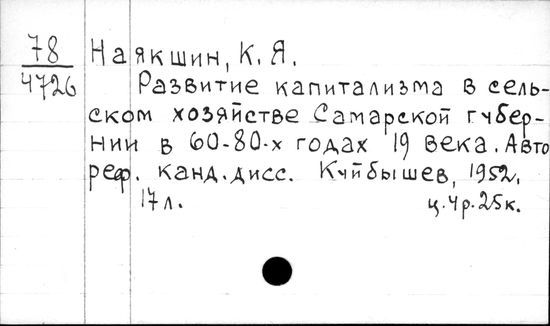 78 Наякшин, К. Я.
4726 Развитие капитализма в сель-
ском хозяйстве Самарской губер-
нии в 60-80-х годах 19 века. Авто
реф. канд. дисс. Куйбышев, 1952.
17 л. ц. 4 р. 25 к.